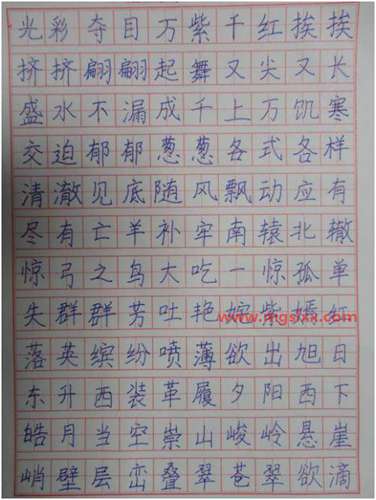 光彩夺目万紫千红挨挨
挤挤翩翩起舞又尖又长
盛水不漏成千上万饥寒
交迫郁郁葱葱各式各样
清澈见底随风飘动应有
尽有亡羊补牢南辕北辙
惊弓之鸟大吃一惊孤单
失群群芳吐艳姹紫嫣红
www.mgsxx.com
落英缤纷喷薄欲出旭日
东升西装革履夕阳西下
皓月当空崇山峻岭悬崖
峭壁层峦叠翠苍翠欲滴